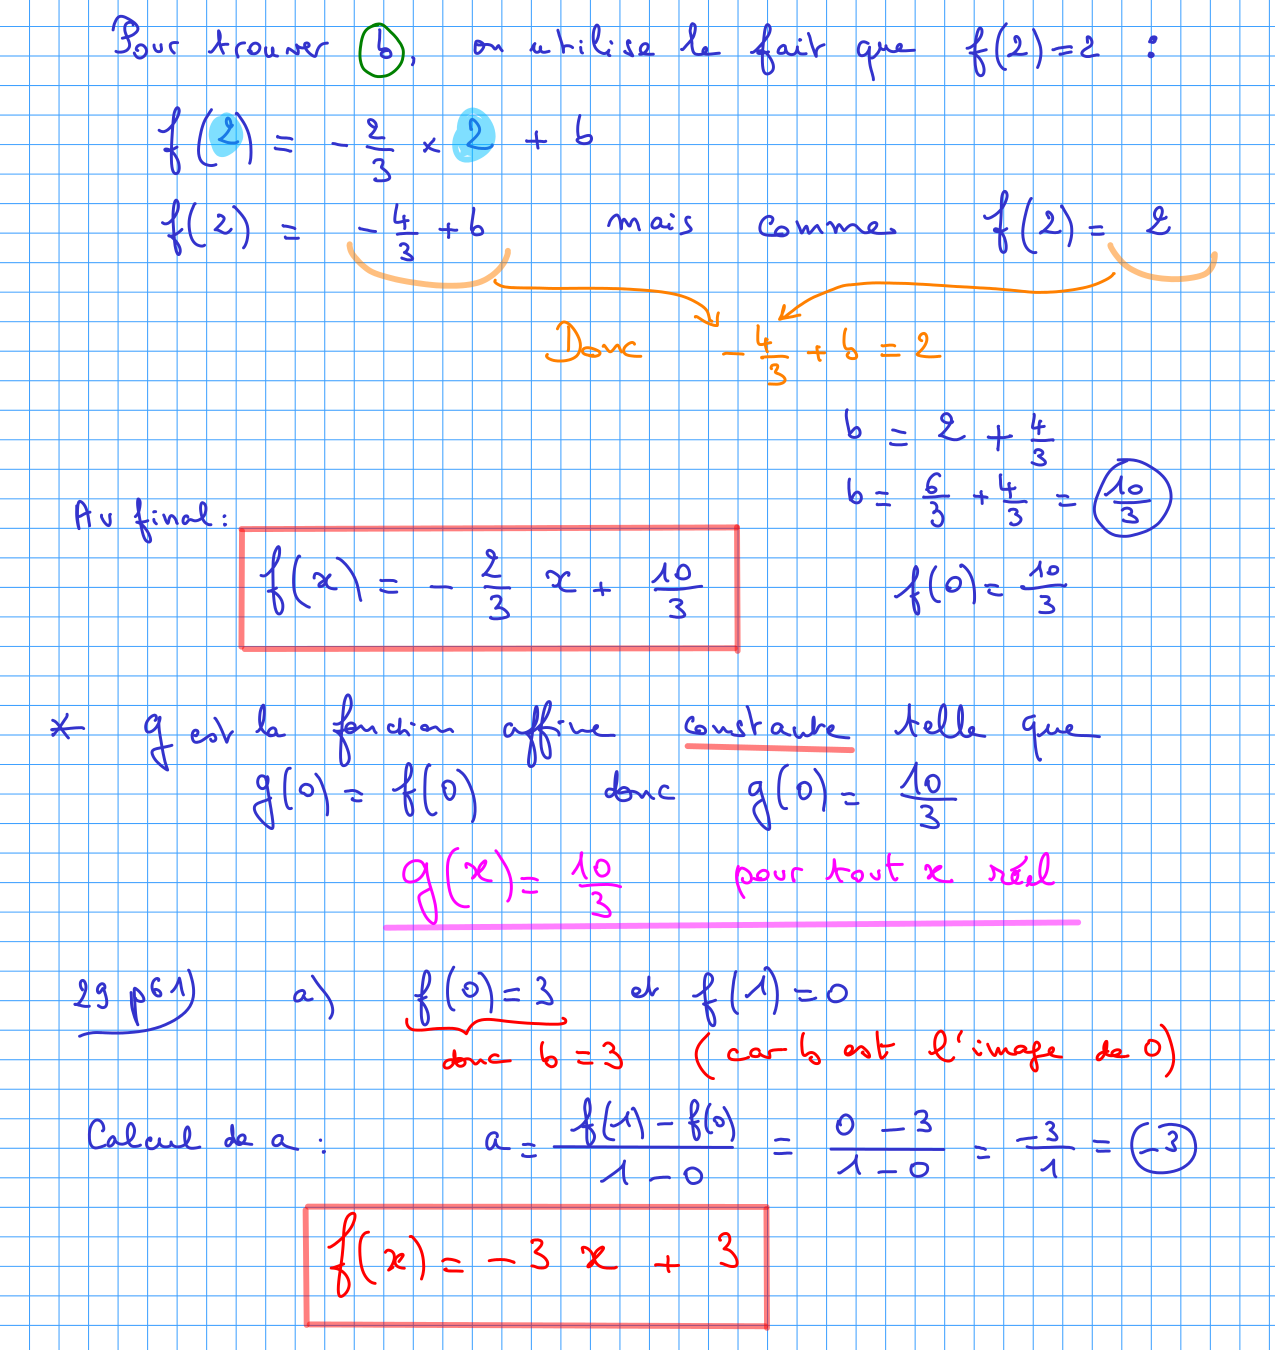 Pour trouver b, on utilise le fait que f(2)=2 :
f(2) = -2/3 × 2 + b
f(2) = -4/3 + b mais comme f(2) = 2
Donc -4/3 + b = 2
b = 2 + 4/3
b = 6/3 + 4/3 = 10/3
Au final:
f(x) = -2/3 x + 10/3
f(0) = 10/3
* g est la fonction affine constante telle que
g(0) = f(0) donc g(0) = 10/3
g(x) = 10/3 pour tout x réel
29 p61) a) f(0) = 3 et f(1) = 0
donc b = 3 (car b est l'image de 0)
Calcul de a : a = (f(1) - f(0))/(1 - 0) = (0 - 3)/(1 - 0) = -3/1 = -3
f(x) = -3 x + 3